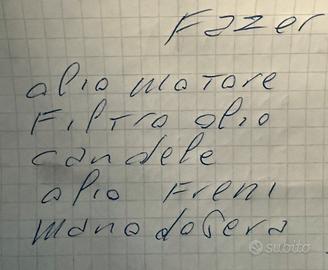 Fazer
olio motore
Filtro olio
candele
olio Freni
mano dopera
subito